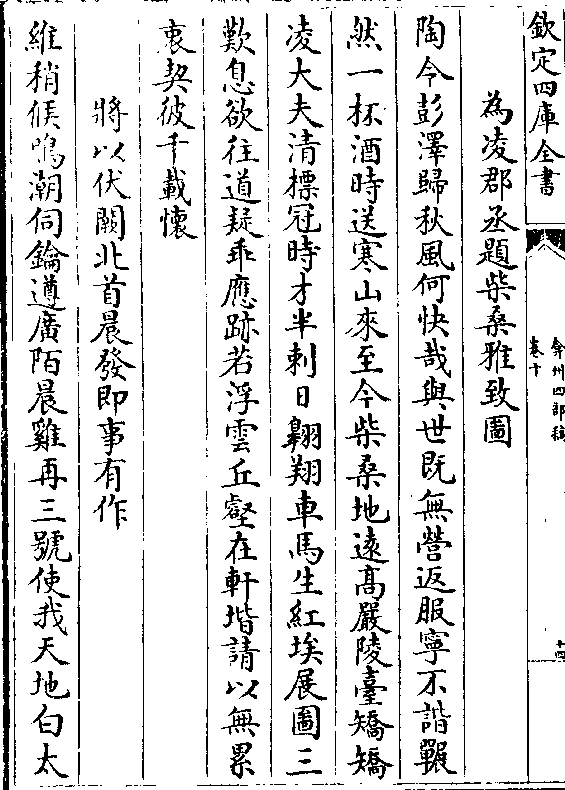 欽定四庫全書
弇州四部稿
卷十
十四
為凌郡丞題柴桑雅致圖
陶令彭澤歸秋風何快哉與世既無營返服寧不諧囅
然一杯酒時送寒山來至今柴桑地遠高嚴陵臺矯矯
凌大夫清標冠時才半刺日翱翔車馬生紅埃展圖三
歎息欲往道疑乖應跡若浮雲丘壑在軒堦請以無累
衷契彼千載懷
將以伏闕北首晨發即事有作
維稍候鳴潮伺鑰遵廣陌晨雞再三號使我天地白太